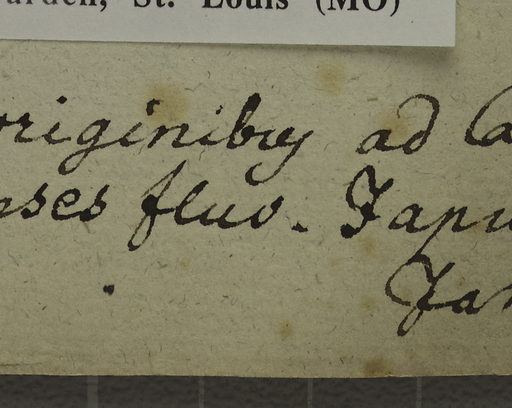 arden, St. Louis (MO)
originibus ad Ca
nses fluv. Japu
Jan